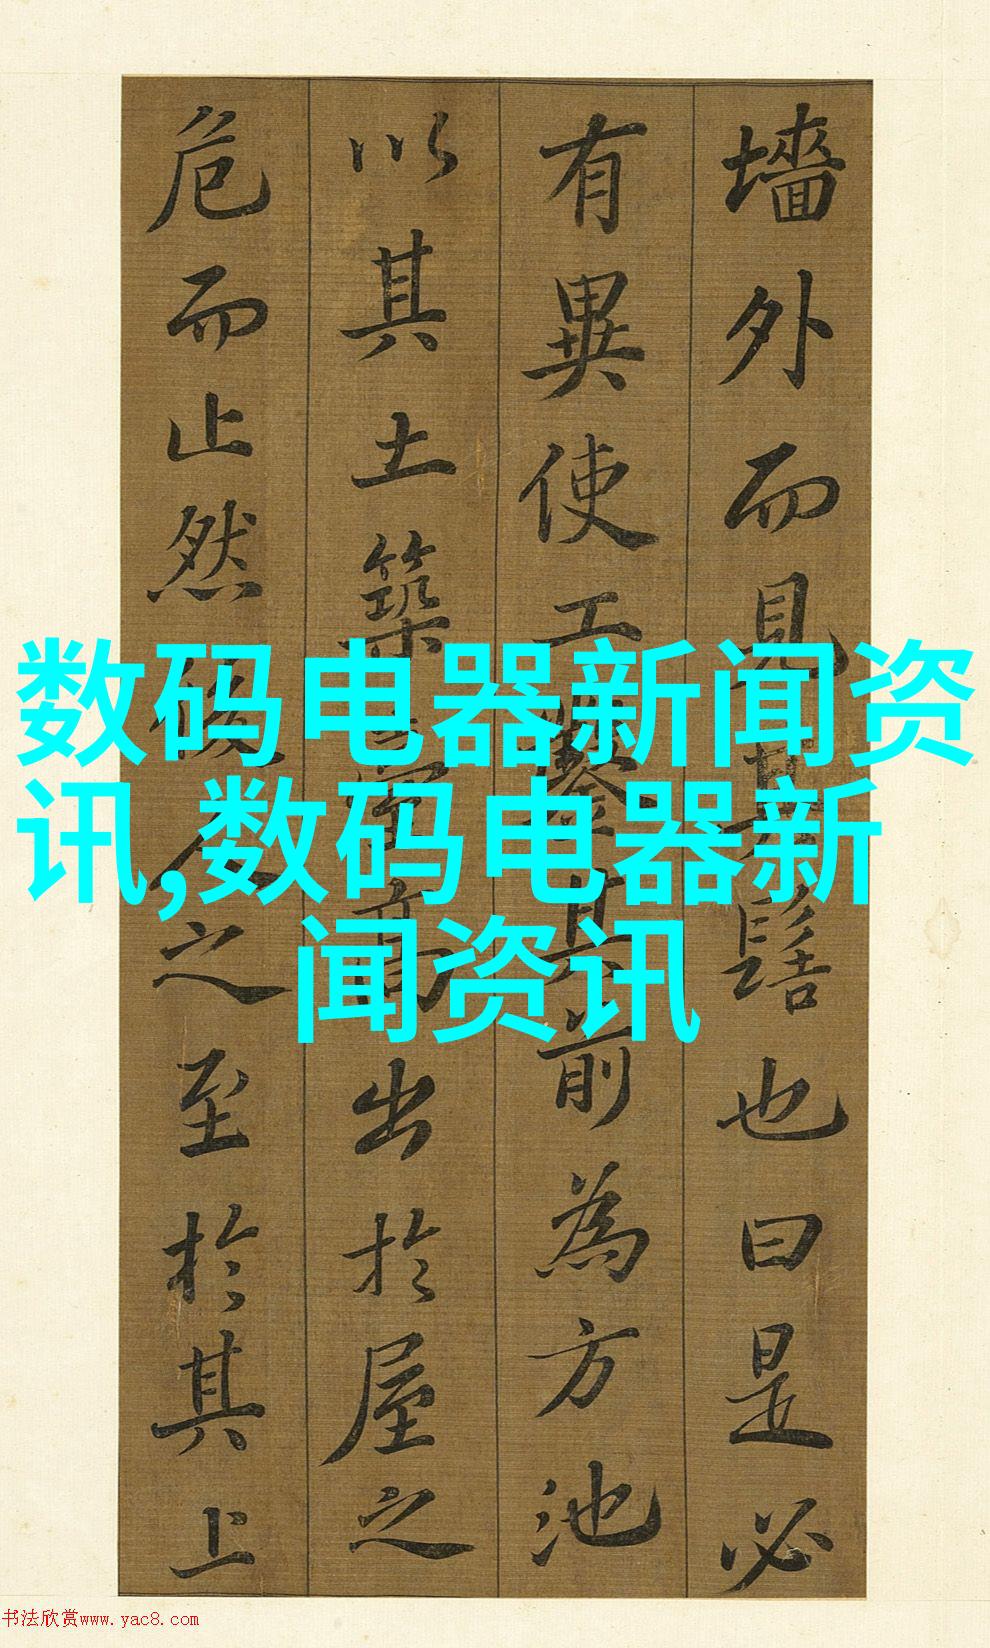 墻外而見其髻也曰是必
有異使工鑿其前為方池
以其土築臺高出於屋之
危而止然後人之至於其上
数码电器新闻资
讯,数码电器新
闻资讯
书法欣赏www.yac8.com